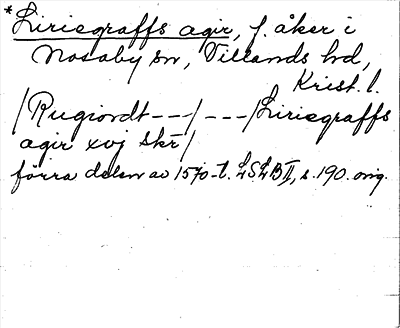 *Liriegraffs agir, f. åker i
Nosaby sn, Villands hd,
Krist. l.
/Rugiordt---/---/Liriegraffs
agir xvj skr/
förra delen av 1570-t. LSLB II, s. 190. orig.